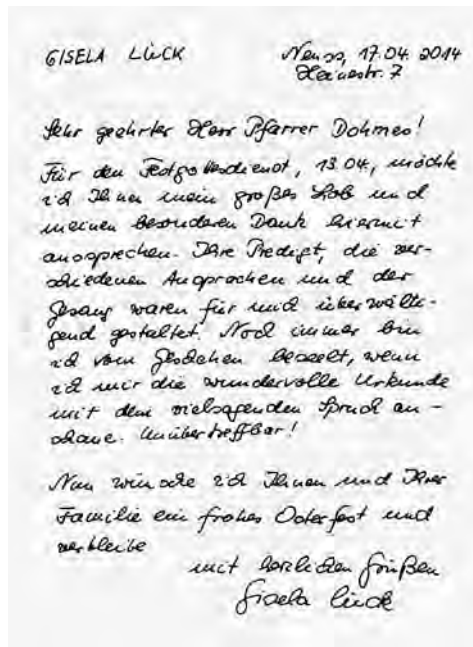 GISELA LÜCK
Neuss, 17.04.2014
Heinestr. 7
Sehr geehrter Herr Pfarrer Dohmes!
Für den Festgottesdienst, 13.04., möchte
ich Ihnen mein großes Lob und
meinen besonderen Dank hiermit
aussprechen. Ihre Predigt, die ver-
schiedenen Ansprachen und der
Gesang waren für mich überwälti-
gend gestaltet. Noch immer bin
ich vom Geschehen beseelt, wenn
ich mir die wundervolle Urkunde
mit dem vielsagenden Spruch an-
schaue. Unübertreffbar!
Nun wünsche ich Ihnen und Ihrer
Familie ein frohes Osterfest und
verbleibe
mit herzlichen Grüßen
Gisela Lück